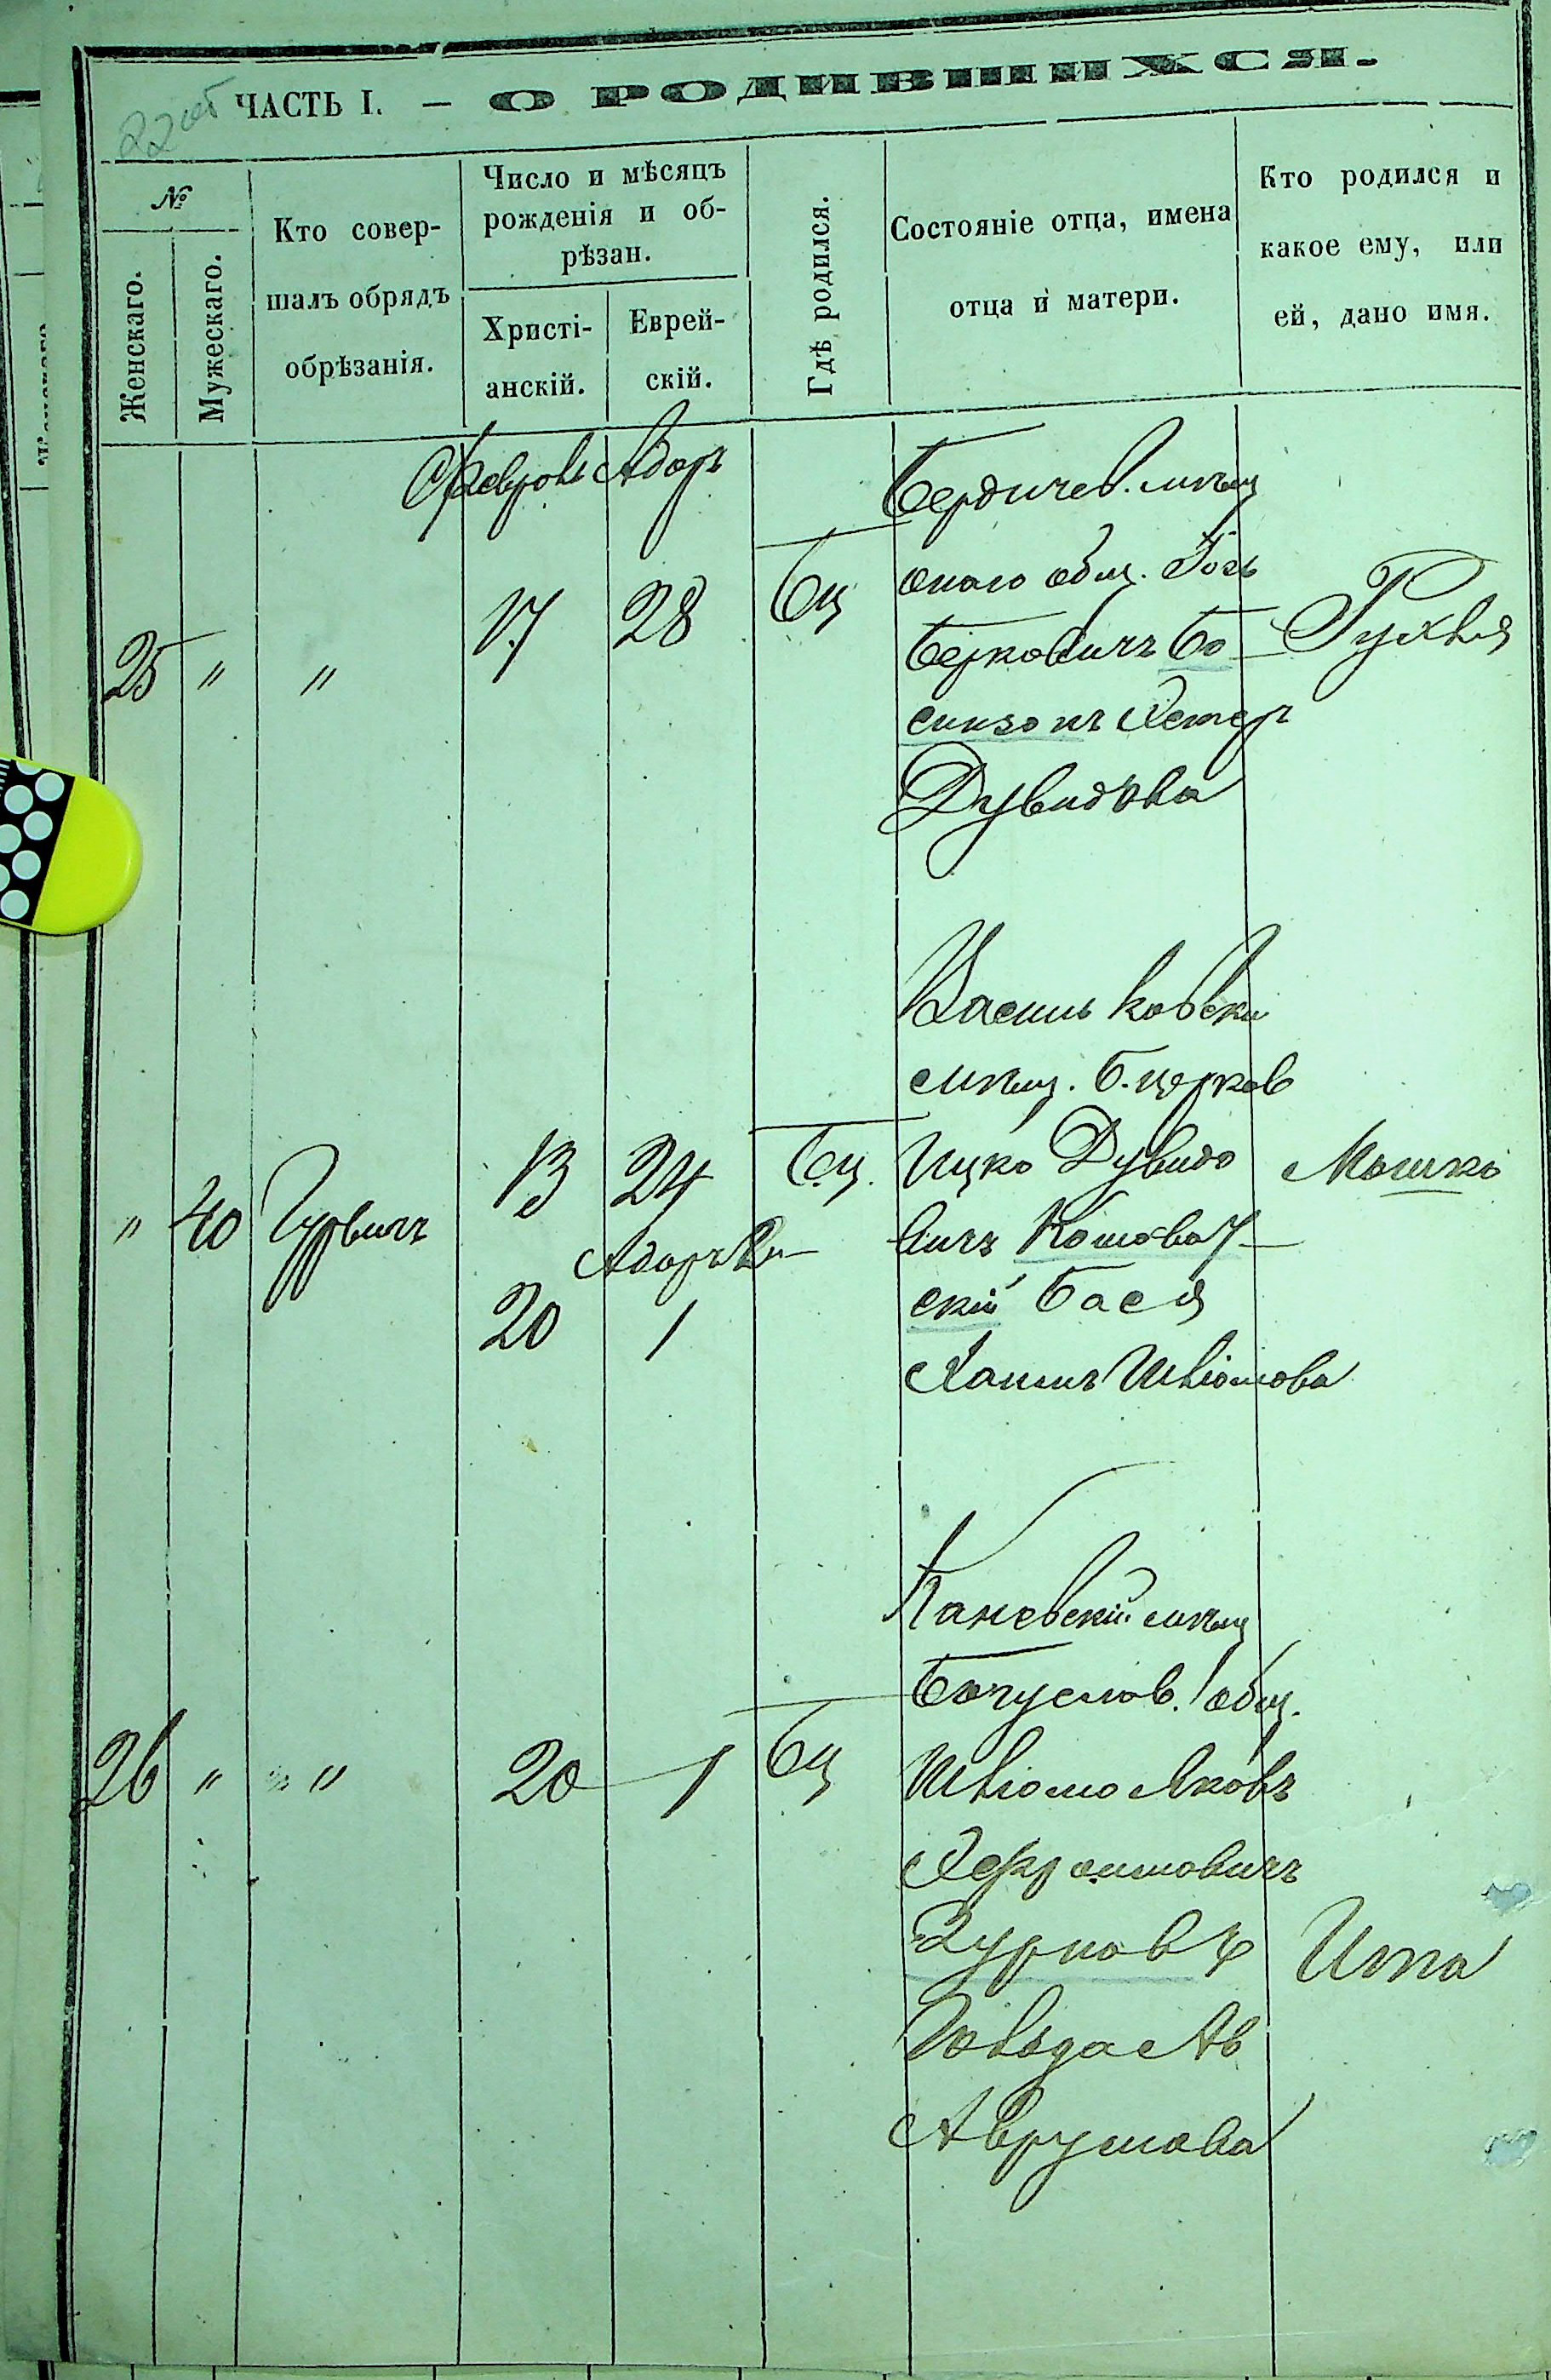 22об
ЧАСТЬ I. — О РОДИВШИХСЯ.
№
Женскаго.
Мужескаго.
Кто совер-
шалъ обрядъ
обрѣзанія.
Число и мѣсяцъ
рожденія и об-
рѣзан.
Христі-
анскій.
Еврей-
скій.
Гдѣ родился.
Состояніе отца, имена
отца и матери.
Кто родился и
какое ему, или
ей, дано имя.
Адаръ
25 " " 17 28 Бц
Бердичев. мѣщ
онаго общ.
Берковичъ Бо-
синзонъ Хетер
Дувидова
Рухля
" 40 Гурвичъ 13 24 Б.ц.
Адаръ
20 1
Васильковски
мѣщ. Б. церков
Ицко Дувидо
вичъ Котоват-
скій Бася
Шліомова
Мошко
26 " " 20 1 Бц
Каневскій мѣщ
Богуслов. общ.
Шліомо Яковъ
Аврумова
Ита